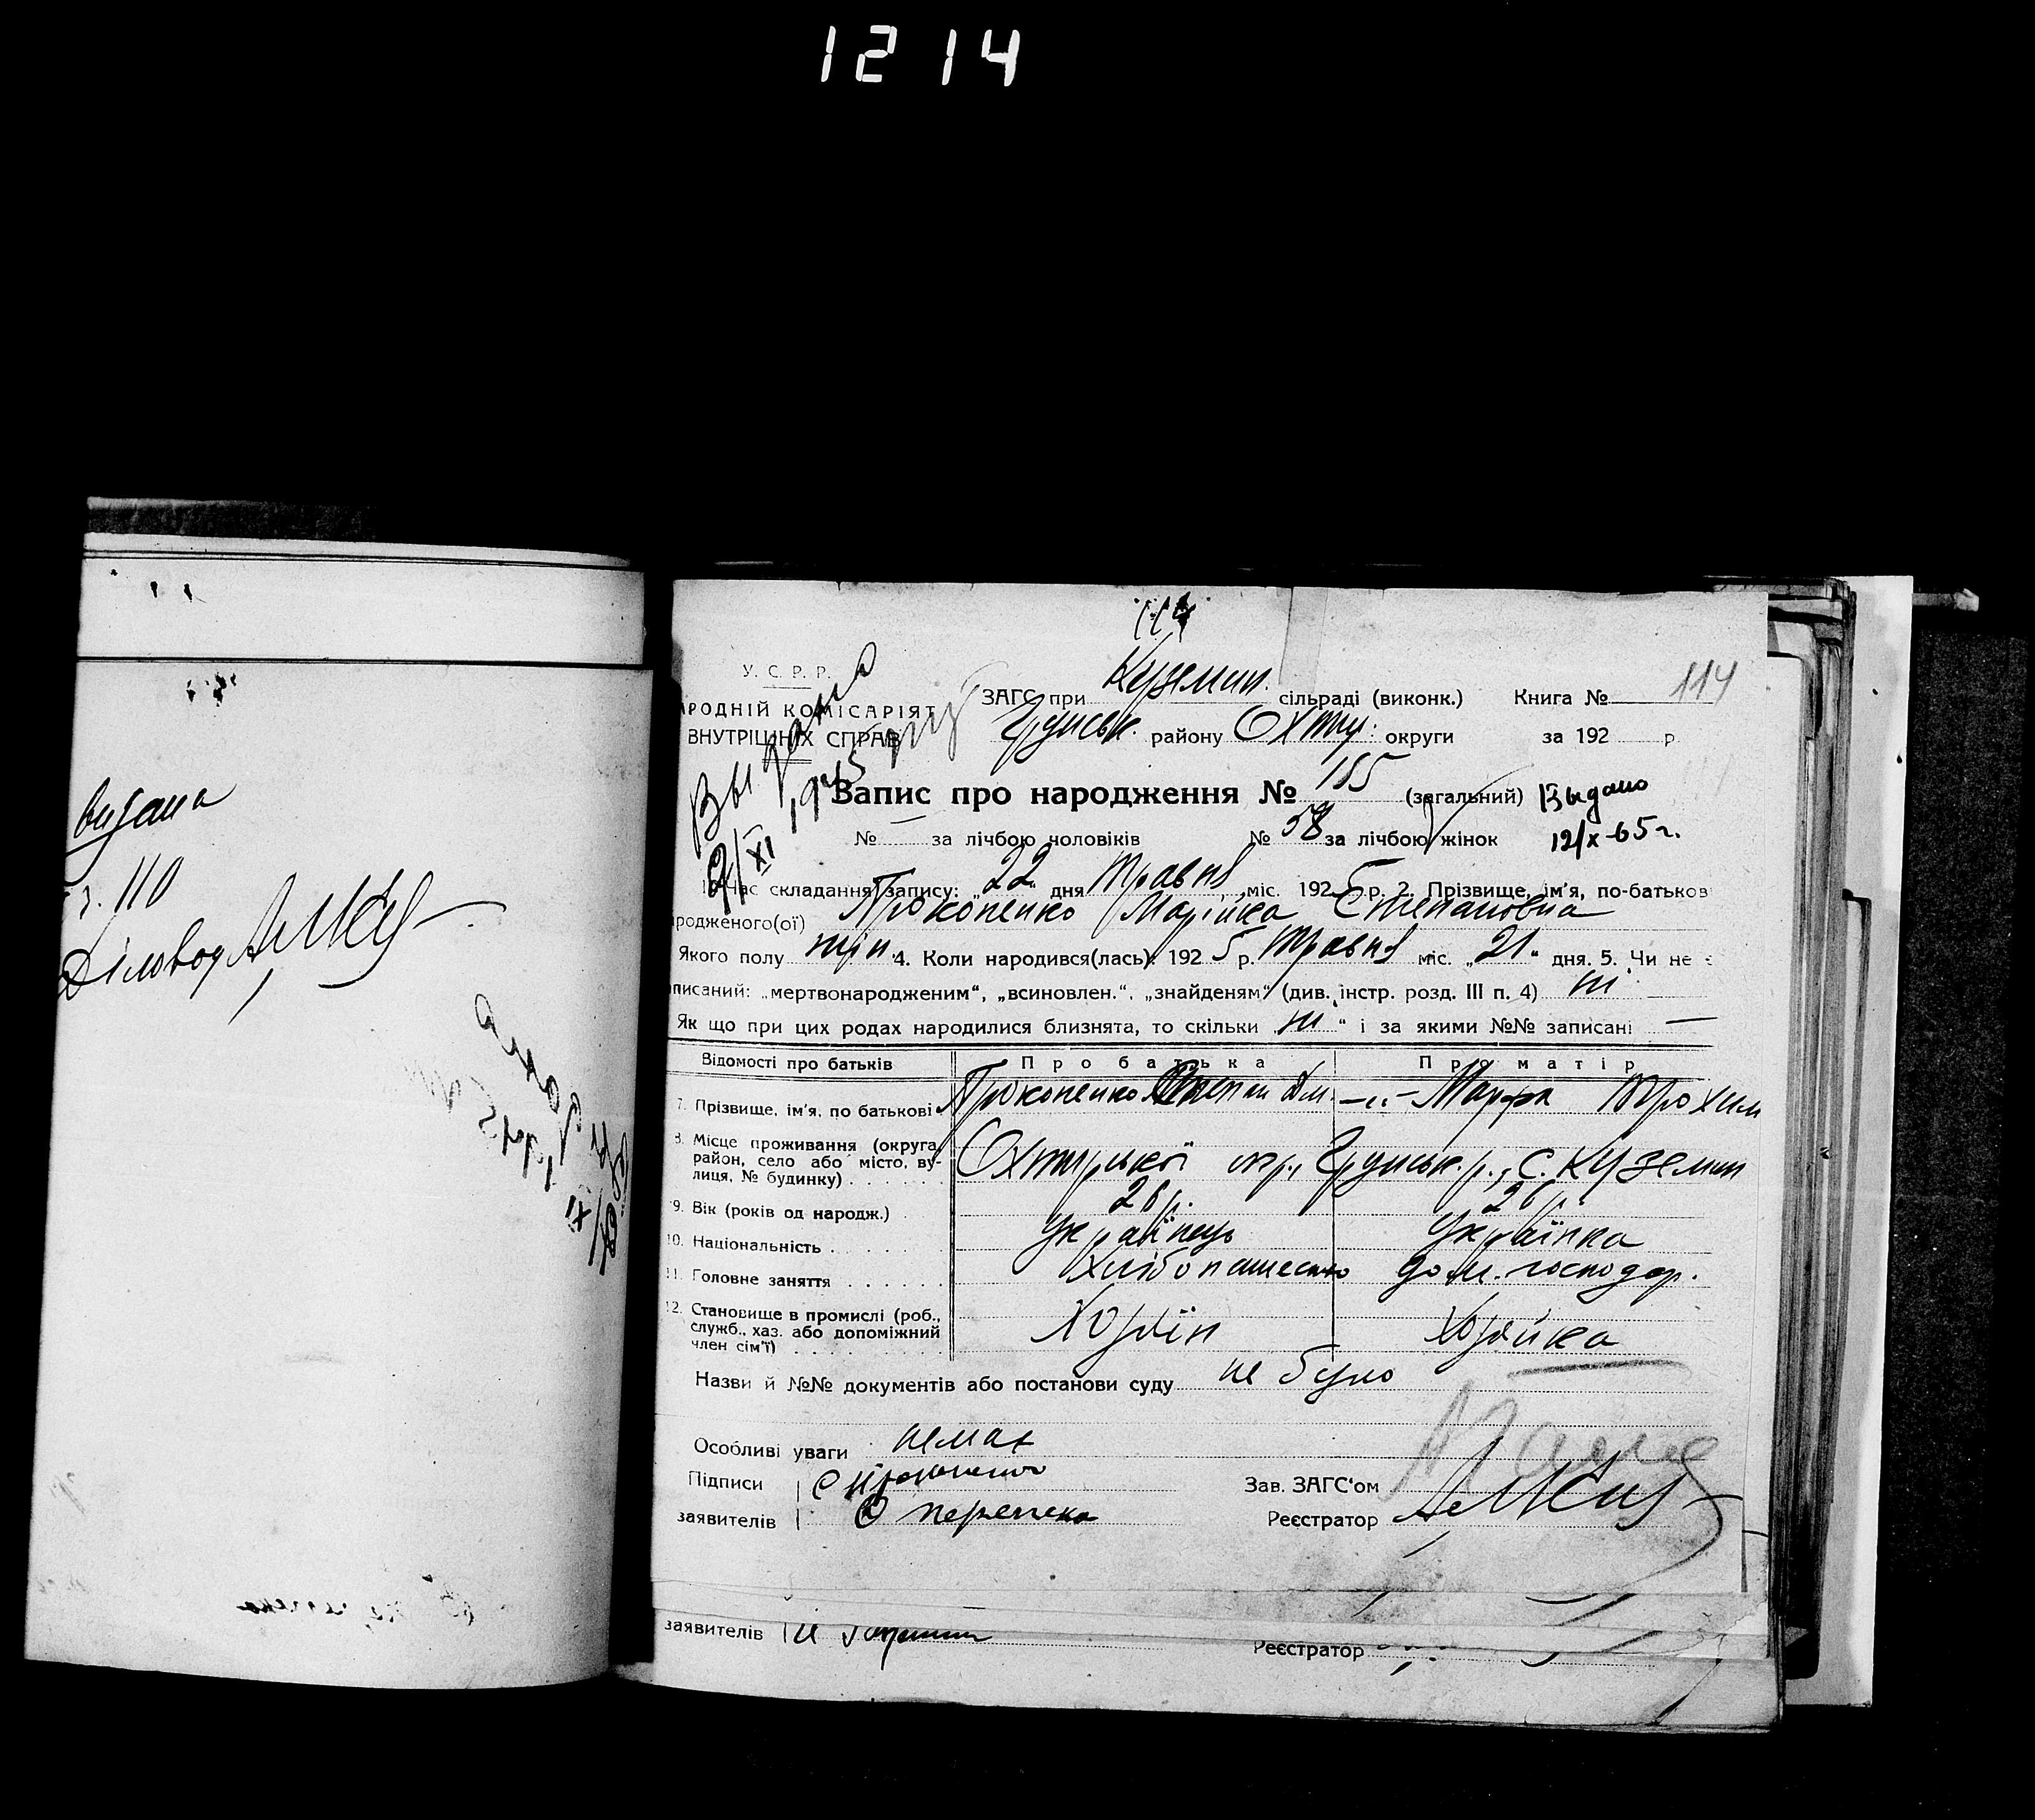 1214
видана
110
Діловод
114
У. С. Р. Р.
ЗАГС при Куземин. сільраді (виконк.) Книга № 114
АРОДНІЙ КОМІСАРІЯТ
ВНУТРІШНІХ СПРАВ
Грунськ. району Охтир. округи за 192 р.
Выдана
1945
9/XI
Запис про народження № 155 (загальний) Выдано
№ — за лічбою чоловіків № 58 за лічбою жінок 12/X-65 г.
Час складання запису: „22“ дня Травня міс. 1925 р. 2. Прізвище, ім'я, по-батьков
родженого(ої) Прокопенко Марійка Степановна
Якого полу жін. 4. Коли народився(лась): 1925 р. Травня міс. „21“ дня. 5. Чи не є
писаний: „мертвонародженим“, „всиновлен.“, „знайденям“ (див. інстр. розд. III п. 4) ні
Як що при цих родах народилися близнята, то скільки „ні“ і за якими №№ записані —
Відомості про батьків Про батька Про матір
7. Прізвище, ім'я, по батькові Прокопенко Степан Дм. —„— Марфа Трохим
8. Місце проживання (округа, район, село або місто, вулиця, № будинку) Охтирської окр., Грунськ. р., с. Куземин
9. Вік (років од народж.) 26 р. 26 р.
10. Національність Українець Українка
11. Головне заняття Хлібопашество дом. господар.
12. Становище в промислі (роб., служб., хаз. або допоміжний член сім'ї) Хозяїн Хозяйка
Назви й №№ документів або постанови суду не було
Особливі уваги немає
Підписи С Прокопенко Зав. ЗАГС'ом
заявителів Реєстратор
заявителів Реєстратор